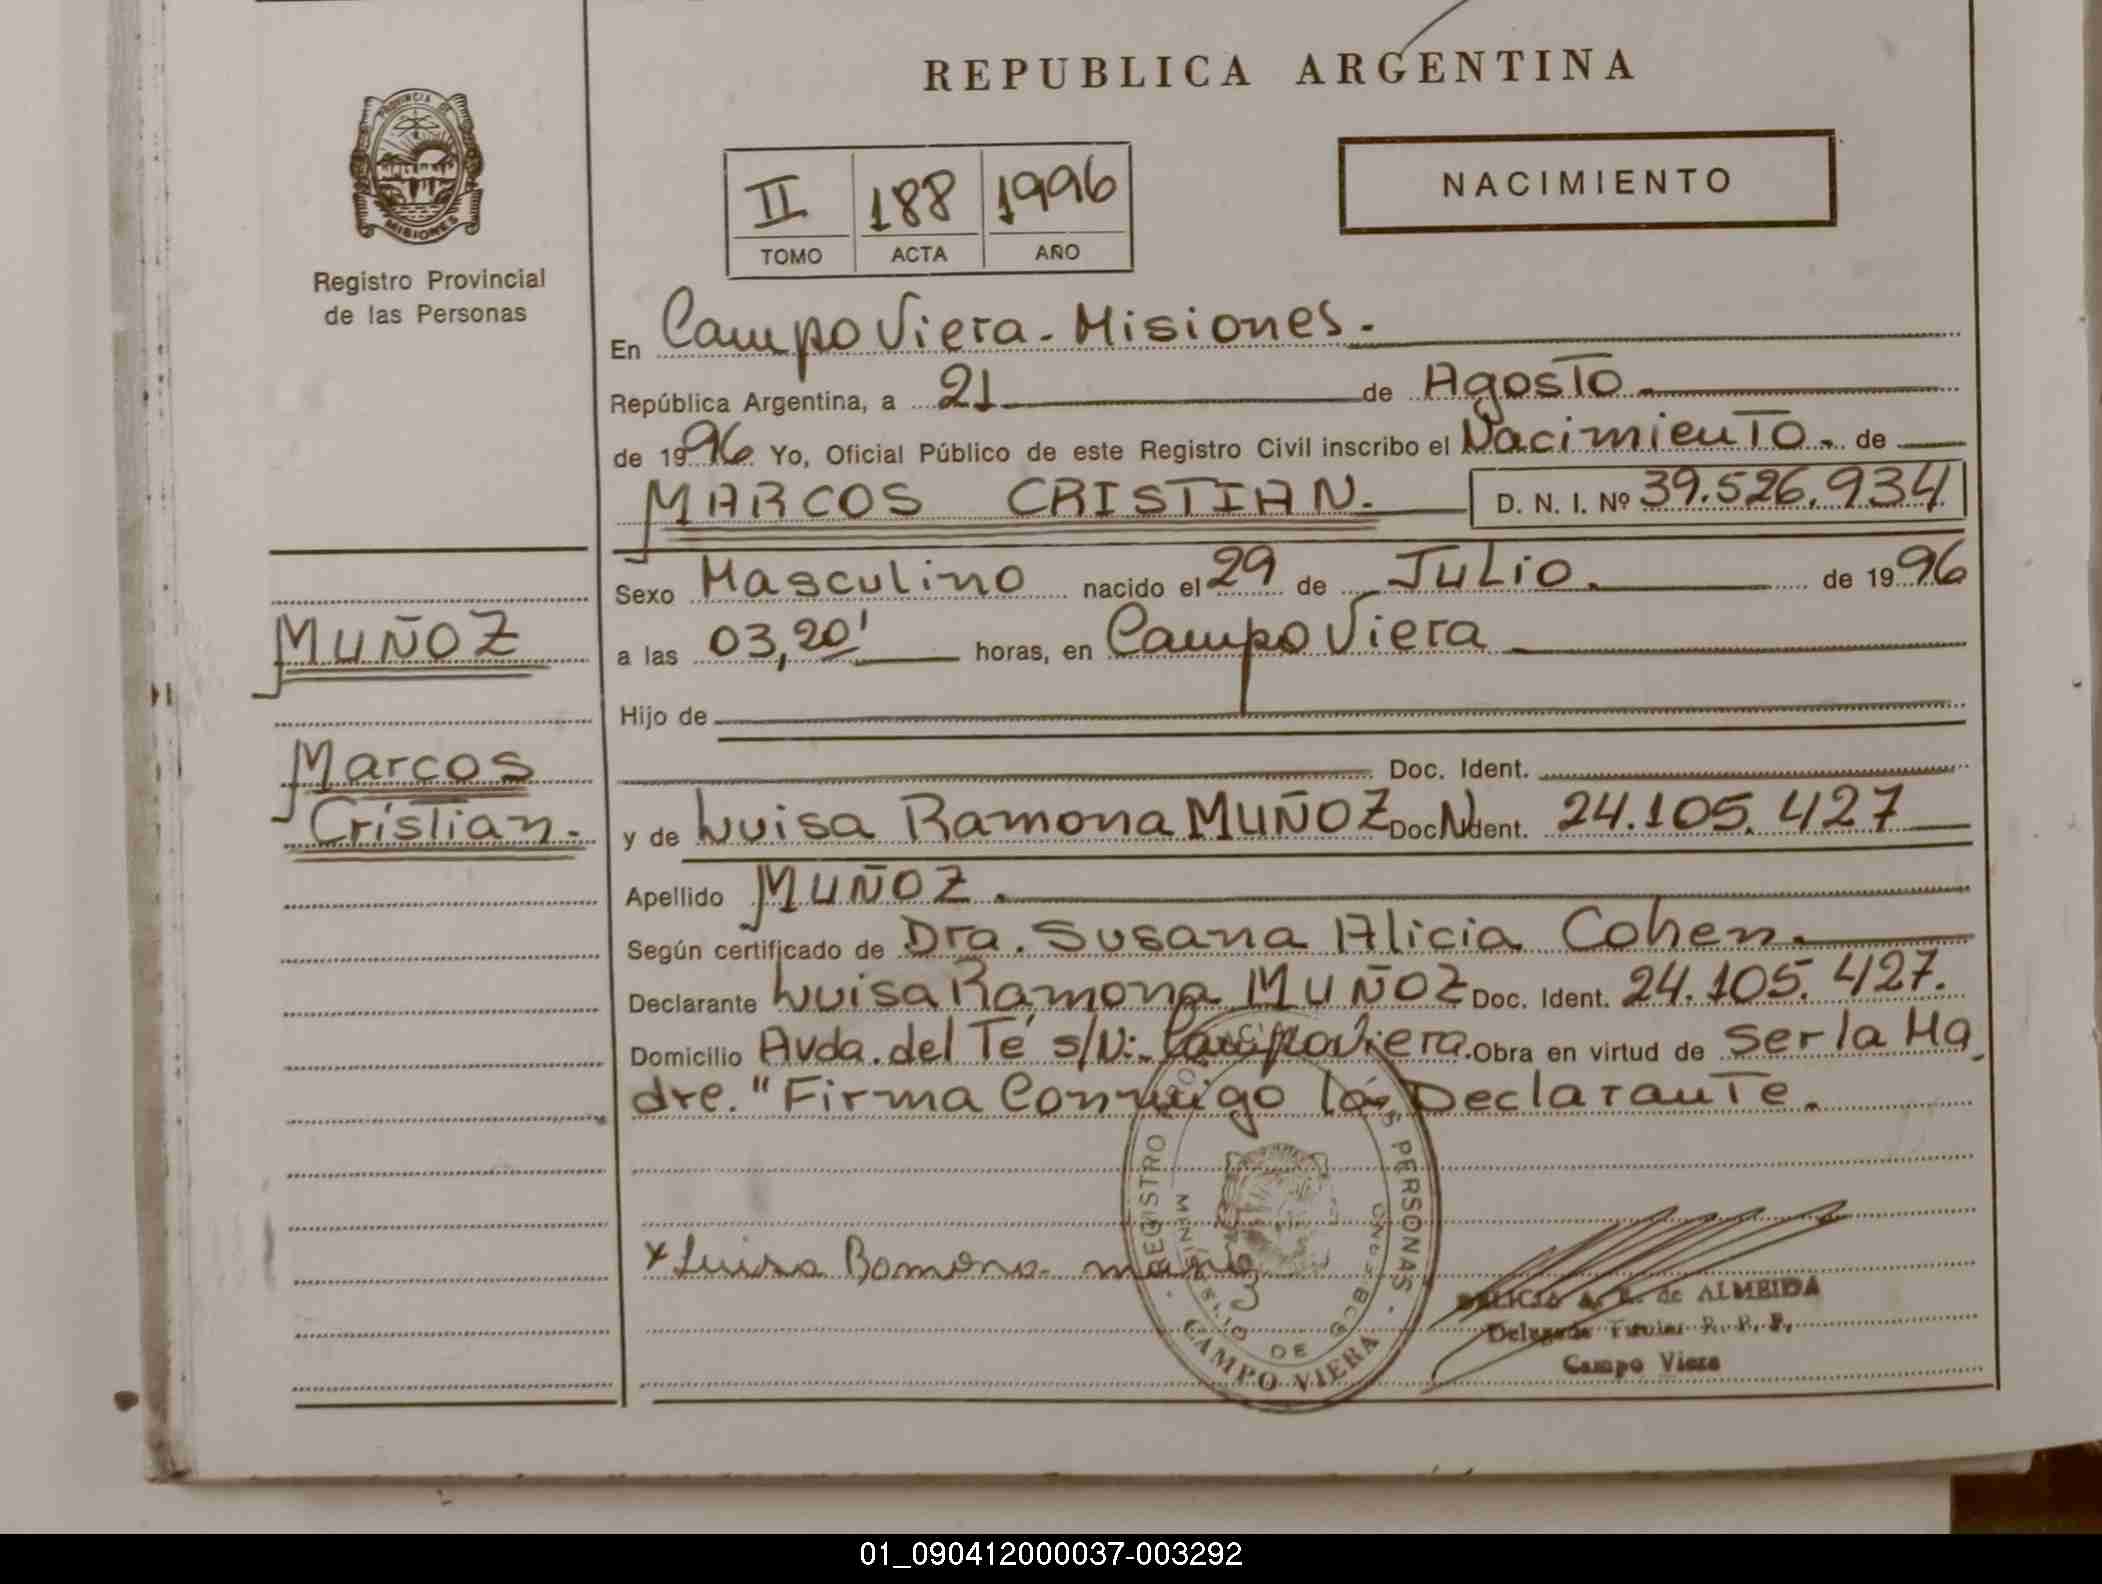 REPUBLICA ARGENTINA
PROVINCIA DE
MISIONES
Registro Provincial
de las Personas
II 188 1996
TOMO ACTA AÑO
NACIMIENTO
En Campo Viera - Misiones.
República Argentina, a 21 de Agosto
de 1996 Yo, Oficial Público de este Registro Civil inscribo el Nacimiento. de
MARCOS CRISTIAN. D. N. I. Nº 39.526.934
Sexo Masculino nacido el 29 de Julio. de 1996
MUÑOZ
a las 03,20' horas, en Campo Viera
Hijo de
Marcos
Cristian.
Doc. Ident.
y de Luisa Ramona MUÑOZ Doc. Ident. 24.105.427
Apellido MUÑOZ.
Según certificado de Dra. Susana Alicia Cohen.
Declarante Luisa Ramona MUÑOZ Doc. Ident. 24.105.427.
Domicilio Avda. del Té s/N: Campo Viera. Obra en virtud de ser la Ma
dre. "Firma Conmigo la Declarante.
REGISTRO PERSONAS
DE
CAMPO VIERA
x Luisa Ramona
de ALMEIDA
R. P. P.
Campo Viera
01_090412000037-003292